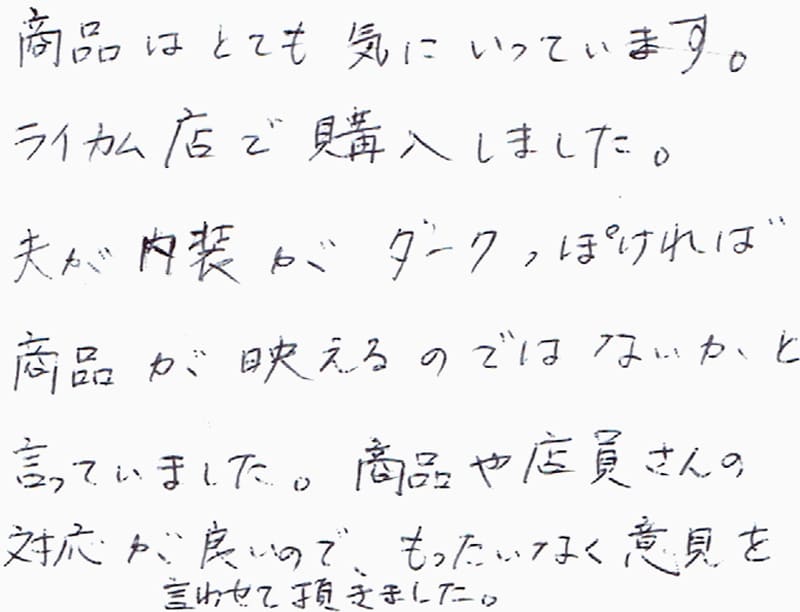 商品はとても気にいっています。
ライカム店で購入しました。
夫が内装がダークっぽければ
商品が映えるのではないか、と
言っていました。商品や店員さんの
対応が良いので、もったいなく意見を
言わせて頂きました。